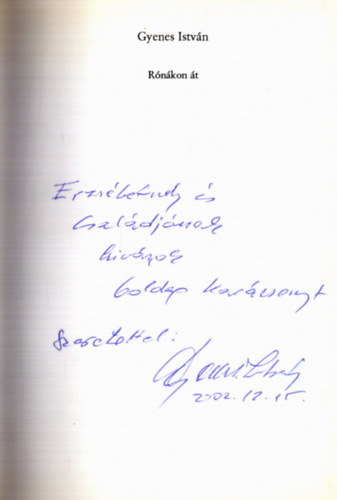 Gyenes István
Rónákon át
Erzsébetnek és
Családjának
kívánok
boldog Karácsonyt
Szeretettel:
Gyenes István
2002.12.15.